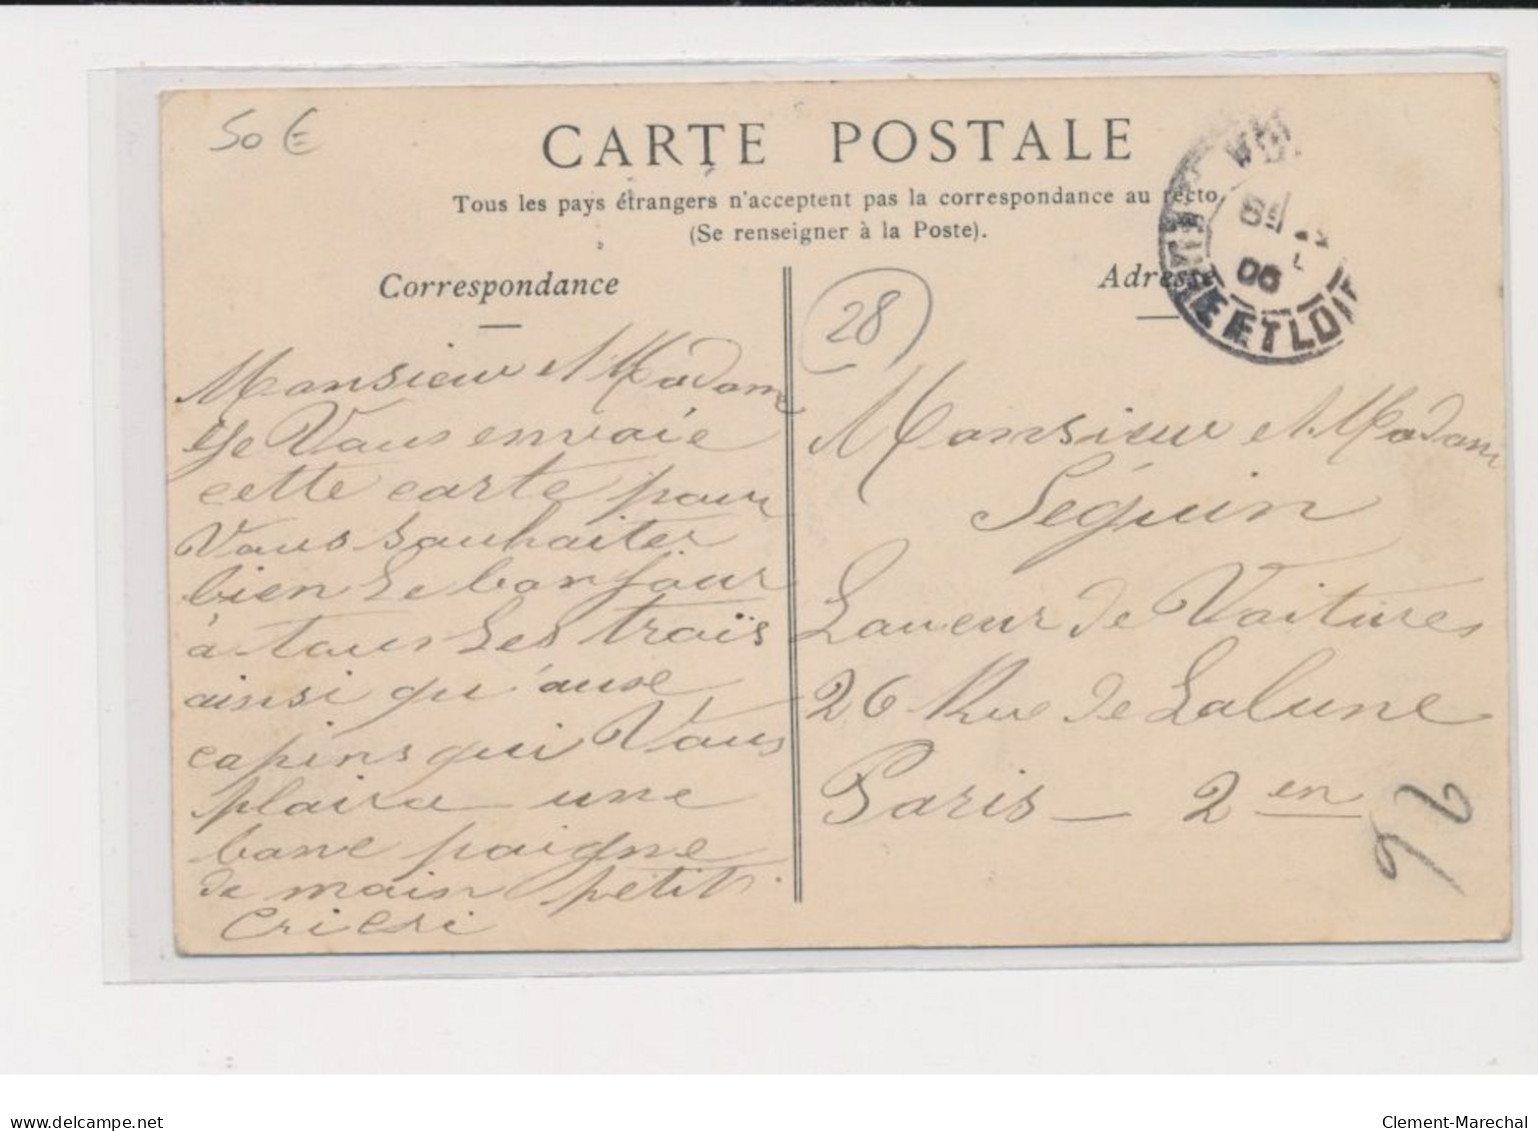 50 €
CARTE POSTALE
Tous les pays étrangers n'acceptent pas la correspondance au recto
(Se renseigner à la Poste).
Correspondance
Adresse
06
EURE ET LOIR
28
Monsieur et Madam
Je Vous envoie
cette carte pour
Vous souhaiter
bien le bonjour
à tous les troïs
ainsi qu'aux
copins qui Vous
plaira une
bone poigne
de main petit
Cricri
Monsieur et Madam
Séguin
Laveur de Voitures
26 Rue de Lalune
Paris — 2 en
26
www.delcampe.net
Clement-Marechal